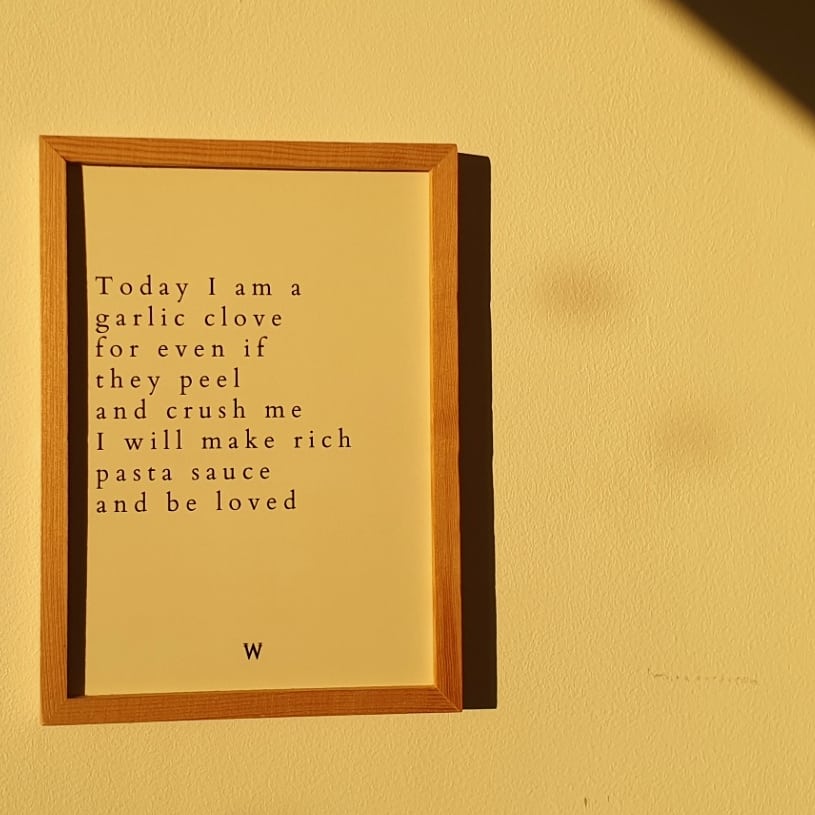 Today I am a
garlic clove
for even if
they peel
and crush me
I will make rich
pasta sauce
and be loved
W